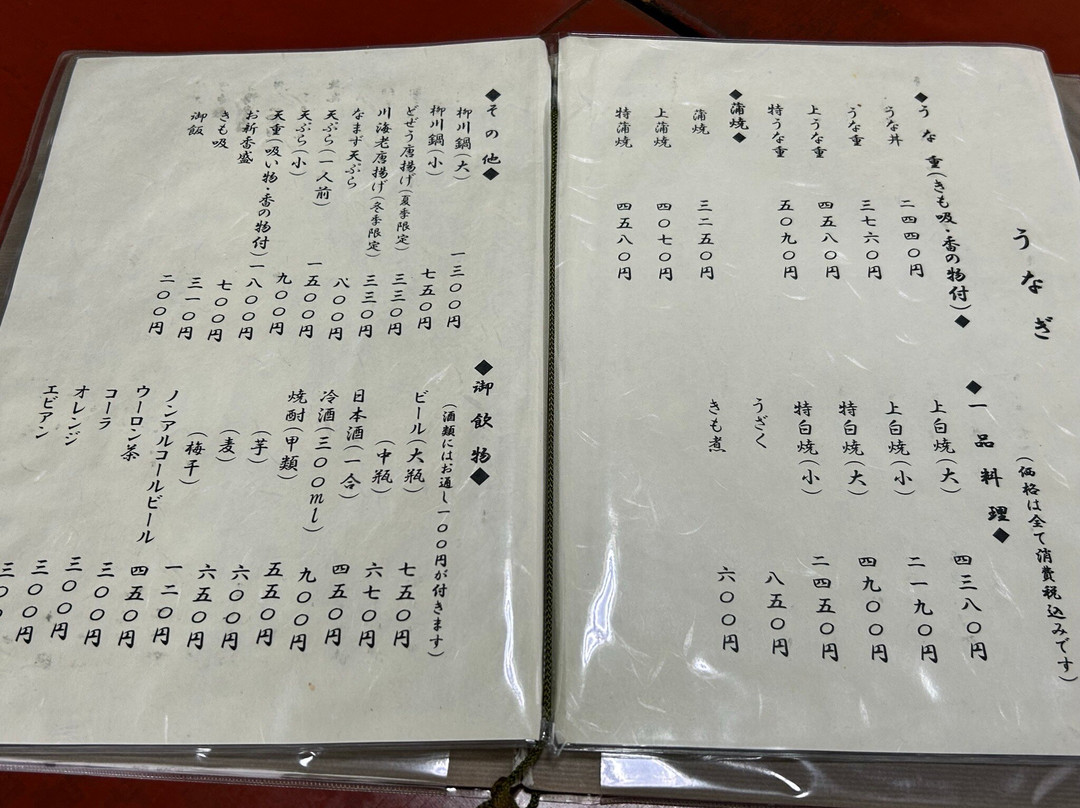 うなぎ
(価格は全て消費税込みです)
◆うな重(きも吸・香の物付)◆
うな丼 二四四〇円
うな重 三七六〇円
上うな重 四五八〇円
特うな重 五〇九〇円
◆蒲焼◆
蒲焼 三二五〇円
上蒲焼 四〇七〇円
特蒲焼 四五八〇円
◆一品料理◆
上白焼(大) 四三八〇円
上白焼(小) 二一九〇円
特白焼(大) 四九〇〇円
特白焼(小) 二四五〇円
うざく 八五〇円
きも煮 六〇〇円
◆その他◆
柳川鍋(大) 一三〇〇円
柳川鍋(小) 七五〇円
どぜう唐揚げ(夏季限定) 三三〇円
川海老唐揚げ(冬季限定) 三三〇円
なまず天ぷら 八〇〇円
天ぷら(一人前) 一五〇〇円
天ぷら(小) 九〇〇円
天重(吸い物・香の物付) 一八〇〇円
お新香盛 七〇〇円
きも吸 三一〇円
御飯 二〇〇円
◆御飲物◆
(酒類にはお通し一〇〇円が付きます)
ビール(大瓶) 七五〇円
(中瓶) 六七〇円
日本酒(一合) 四五〇円
冷酒(三〇〇ml) 九〇〇円
焼酎(甲類) 五五〇円
(芋) 六〇〇円
(麦) 六五〇円
(梅干) 一二〇円
ノンアルコールビール 四五〇円
ウーロン茶 三〇〇円
コーラ 三〇〇円
オレンジ 三〇〇円
エビアン